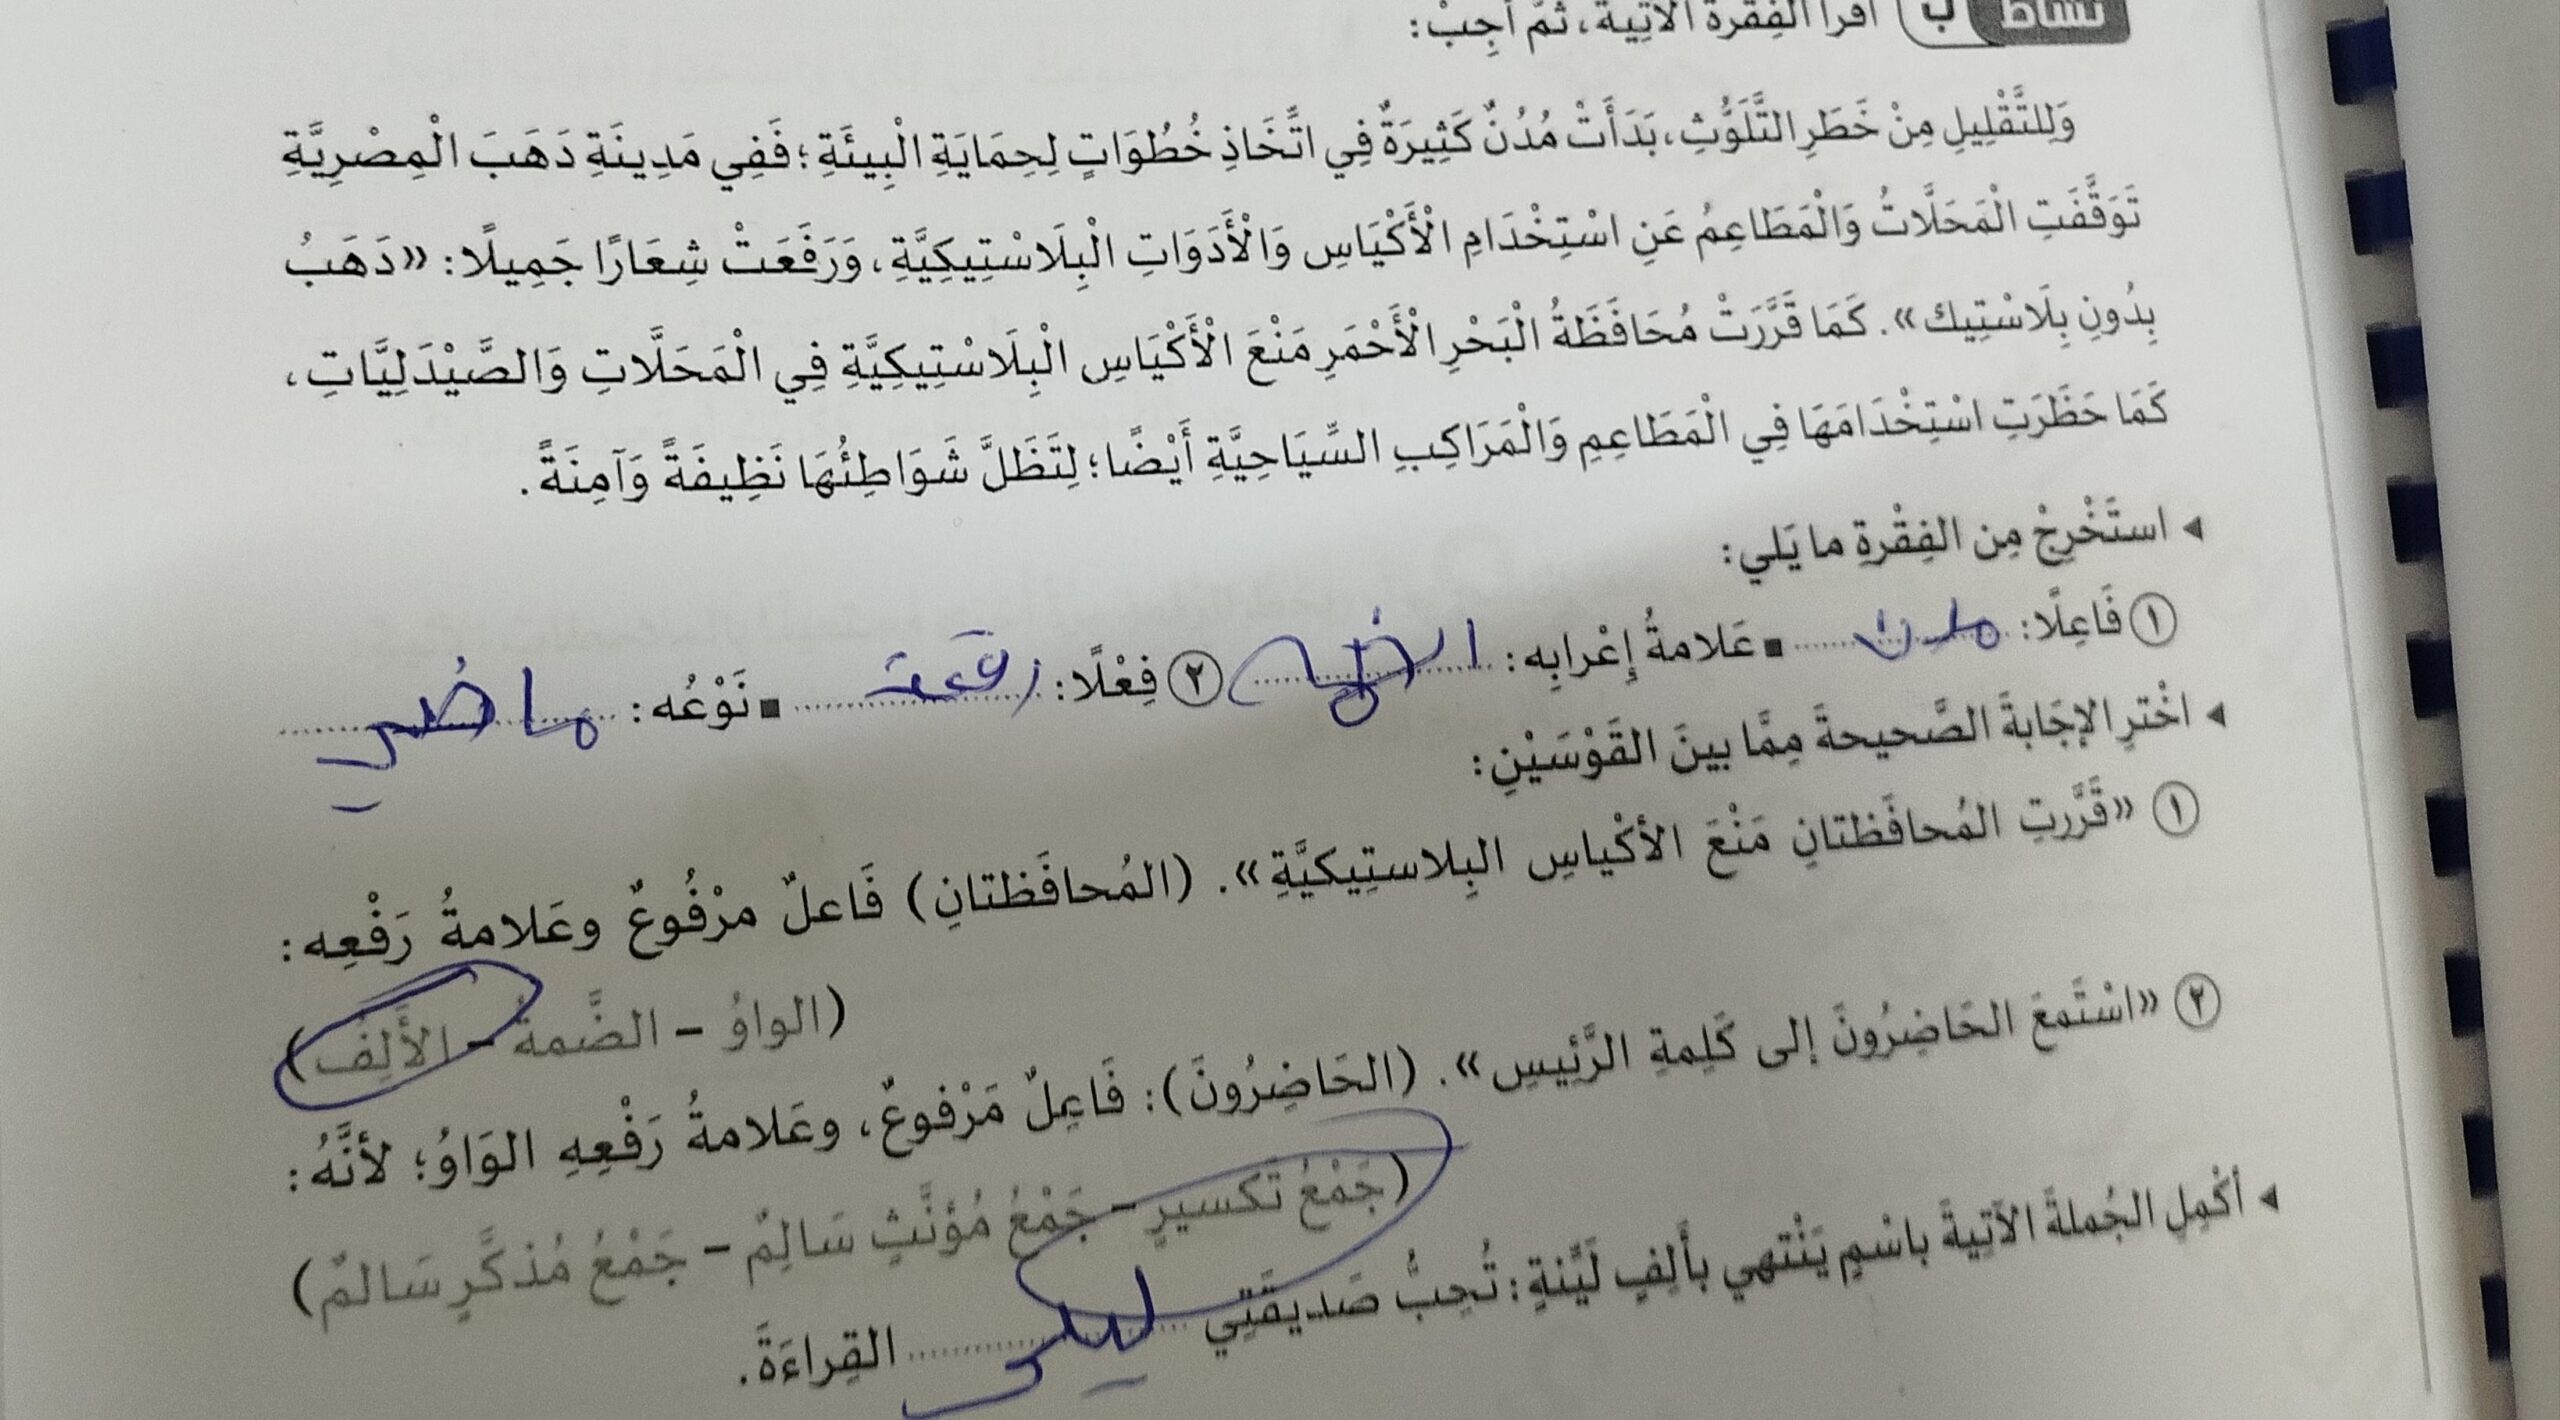 نشاط ب اقرأ الفِقْرةَ الآتِيةَ، ثمَّ أجِبْ:
وَلِلتَّقْلِيلِ مِنْ خَطَرِ التَّلَوُّثِ، بَدَأَتْ مُدُنٌ كَثِيرَةٌ فِي اتَّخَاذِ خُطُوَاتٍ لِحِمَايَةِ الْبِيئَةِ؛ فَفِي مَدِينَةِ دَهَبَ الْمِصْرِيَّةِ
تَوَقَّفَتِ الْمَحَلَّاتُ وَالْمَطَاعِمُ عَنِ اسْتِخْدَامِ الْأَكْيَاسِ وَالْأَدَوَاتِ الْبِلَاسْتِيكِيَّةِ، وَرَفَعَتْ شِعَارًا جَمِيلًا: «دَهَبُ
بِدُونِ بِلَاسْتِيك». كَمَا قَرَّرَتْ مُحَافَظَةُ الْبَحْرِ الْأَحْمَرِ مَنْعَ الْأَكْيَاسِ الْبِلَاسْتِيكِيَّةِ فِي الْمَحَلَّاتِ وَالصَّيْدَلِيَّاتِ،
كَمَا حَظَرَتِ اسْتِخْدَامَهَا فِي الْمَطَاعِمِ وَالْمَرَاكِبِ السِّيَاحِيَّةِ أَيْضًا؛ لِتَظَلَّ شَوَاطِئُهَا نَظِيفَةً وَآمِنَةً.
◂ استَخْرِجْ مِن الفِقْرةِ ما يَلي:
١ فَاعِلًا: مدن ■ عَلامةُ إِعْرابِه: ٢ فِعْلًا: رفعت ■ نَوْعُه: ماضي
◂ اخْترِ الإجَابةَ الصَّحيحةَ مِمَّا بينَ القَوْسَيْنِ:
١ «قَرَّرتِ المُحافَظتانِ مَنْعَ الأكْياسِ البِلاستِيكيَّةِ». (المُحافَظتانِ) فَاعلٌ مرْفُوعٌ وعَلامةُ رَفْعِه:
(الواوُ – الضَّمةُ – الأَلِفُ)
٢ «اسْتَمعَ الحَاضِرُونَ إلى كَلِمةِ الرَّئِيسِ». (الحَاضِرُونَ): فَاعِلٌ مَرْفوعٌ، وعَلامةُ رَفْعِهِ الوَاوُ؛ لأنَّهُ:
(جَمْعُ تَكسيرٍ – جَمْعُ مُؤنَّثٍ سَالِمٌ – جَمْعُ مُذكَّرٍ سَالمٌ)
◂ أكْمِلِ الجُملةَ الآتِيةَ باسْمٍ يَنْتهي بأَلِفٍ لَيِّنةٍ: تُحِبُّ صَديقَتِي ليلى القِراءَةَ.